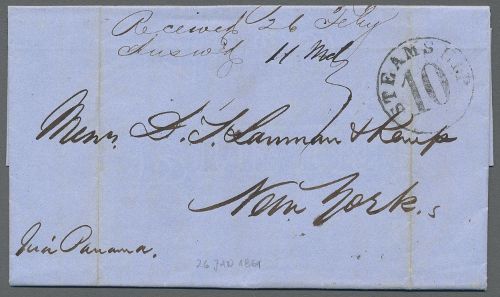 Received 26 Feby
Answd 11 Mch
STEAMSHIP
10
Messrs. D. T. Lanman & Kemp
New York.
Via Panama.
26 JAN 1861